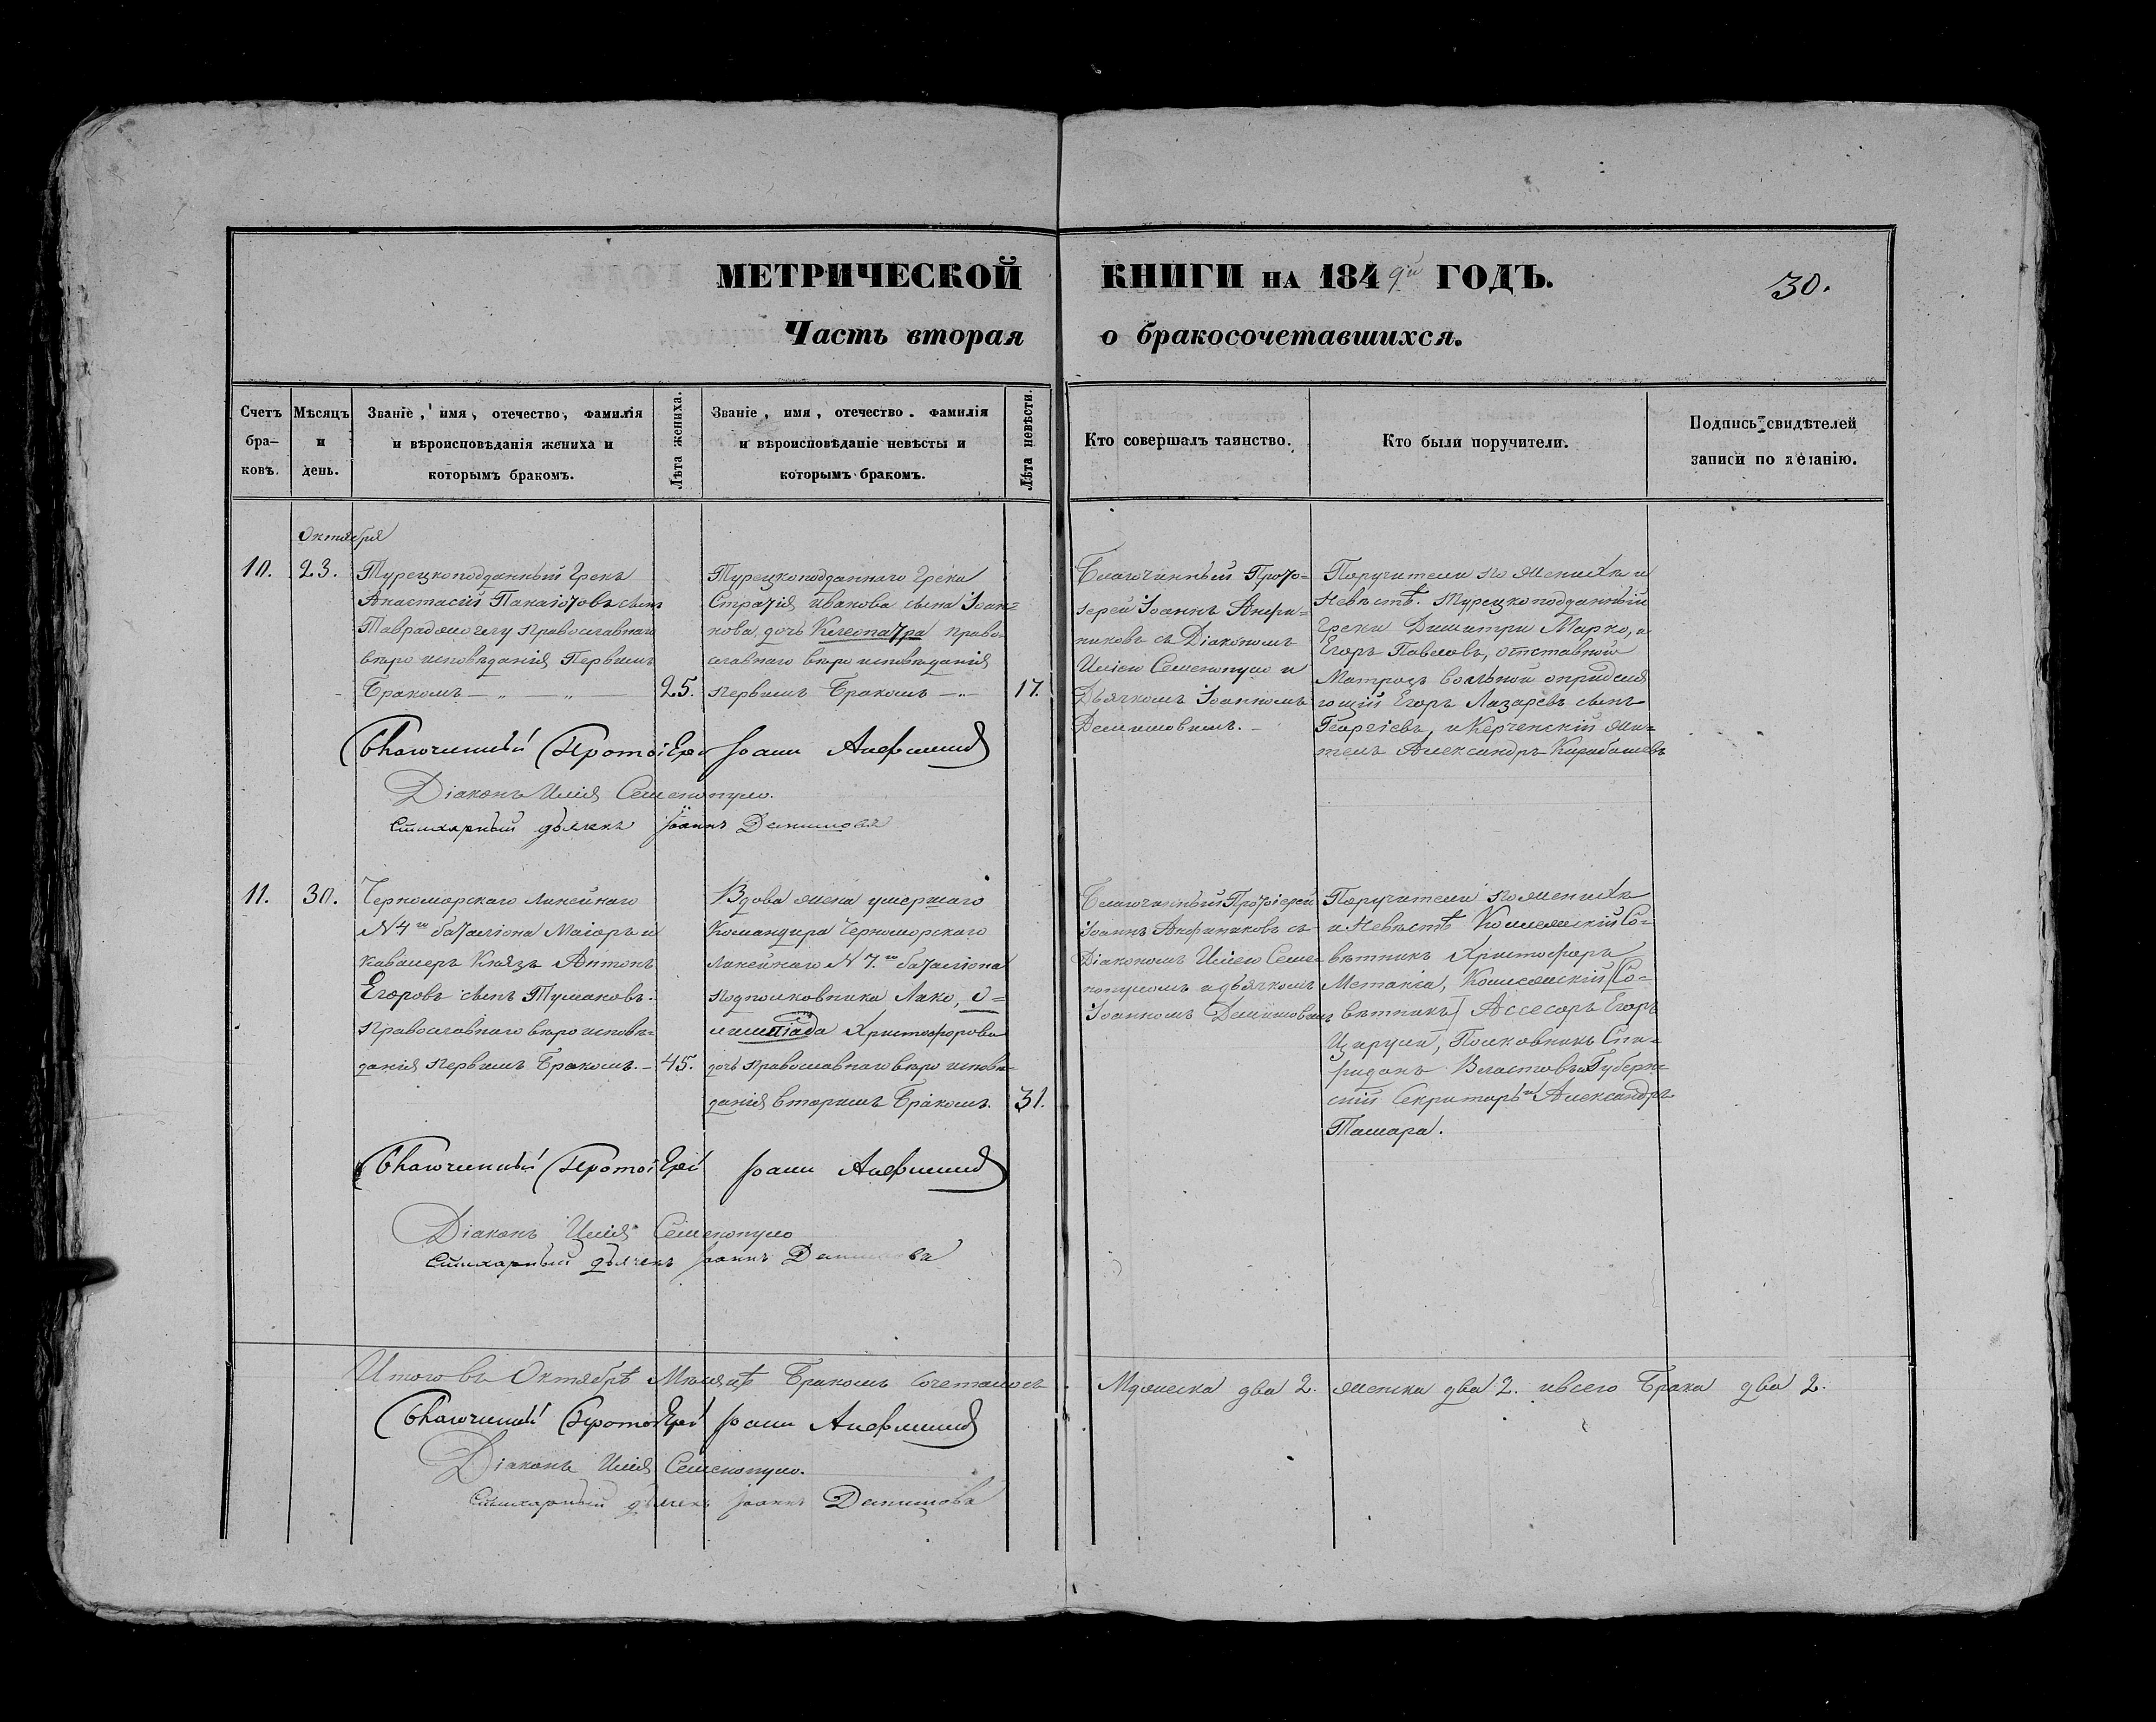 МЕТРИЧЕСКОЙ КНИГИ НА 1849й ГОДЪ.
30.
Часть вторая о бракосочетавшихся.
Счетъ бра-ковъ.
Мѣсяцъ и день.
Званіе, имя, отечество, фамилія
и вѣроисповѣданія жениха и
которымъ бракомъ.
Лѣта жениха.
Званіе, имя, отечество. фамилія
и вѣроисповѣданіе невѣсты и
которымъ бракомъ.
Лѣта невѣсти.
Кто совершалъ таинство.
Кто были поручители.
Подпись свидѣтелей
записи по желанію.
Октября
10.
23.
Турецкоподданный Грекъ
Анастасій Панаіотовъ сынъ
православнаго
вѣро исповѣданія Первымъ
Бракомъ
25.
Турецкоподданнаго Грека
Стратія Иванова сына Іоан=
нова дочь Клеопатра право-
славнаго вѣро исповѣданія
первымъ Бракомъ
17.
Благочинный Прото=
іерей Іоаннъ Анфи=
никовъ съ Діакономъ
Иліею Семенопуло и
Дьячкомъ Іоанномъ
Поручители по женихѣ и
Невѣстѣ. Турецкоподданный
Греки Димитри Марко, и
Егоръ Павловъ, отставной
Матросъ вольной
Егоръ Лазаревъ сынъ
Георгіевъ, и Керченскій жи-
тель Александръ
Благочинный Протоіерей Іоаннъ
Діаконъ Илія Семенопуло.
Стихарный дьячекъ Іоаннъ
11.
30.
Черноморскаго линейнаго
N 4го баталіона Маіоръ и
кавалеръ Князь Антонъ
Егоровъ сынъ Тумановъ.
Православнаго вѣро исповѣ=
данія первымъ Бракомъ.
45.
Вдова жена умершаго
Командира Черноморскаго
линейнаго N 7.го баталіона
подполковника Лако, О=
лимпіада Христофорова
дочь православнаго вѣро исповѣ=
данія вторымъ Бракомъ.
31.
Благочинный Протоіерей
Іоаннъ Анфиниковъ съ
Діакономъ Иліею Семе-
нопуломъ и дьячкомъ
Іоанномъ
Поручители по женихѣ
и Невѣстѣ Коллежскій Со=
вѣтникъ Христофоръ
Метакса, Коллежскій [Со=
вѣтникъ] Ассесоръ Егоръ
Цирули, Полковникъ Спи=
ридонъ Властовъ и Губерн=
скій Секритарь Александръ
Тамара.
Благочинный Протоіерей Іоаннъ
Діаконъ Илія Семенопуло
Стихарный дьячекъ Іоаннъ
Итого въ Октябрѣ Мѣсяцѣ Бракомъ сочеталось Мужеска два 2. женска два 2. и всего Брака два 2.
Благочинный Протоіерей Іоаннъ
Діаконъ Илія Семенопуло.
Стихарный дьячекъ Іоаннъ